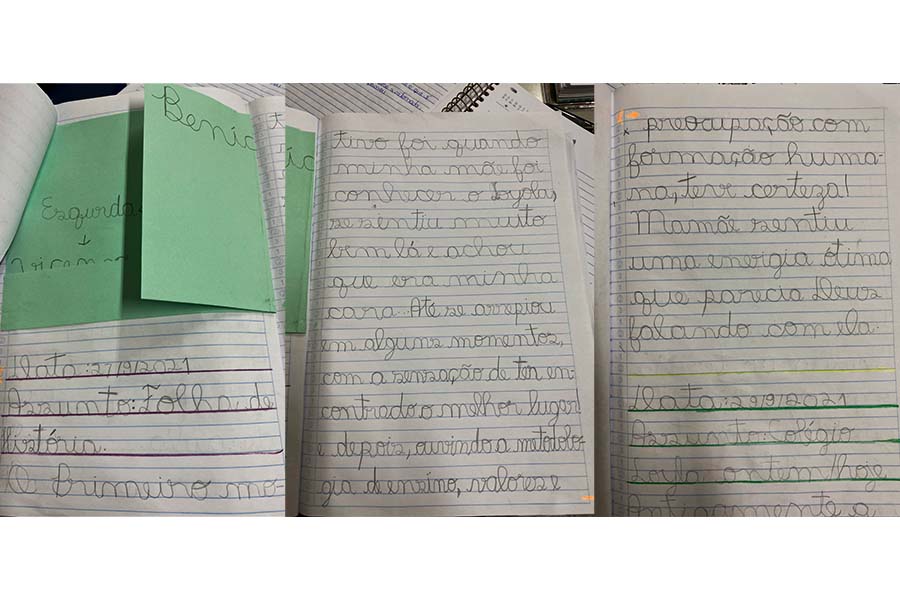 Benic
Esquerda
Data: 27/9/2021
Assunto: Folha de
História.
O Primeiro mo-
tivo foi quando
minha mãe foi
conhecer o Loyola,
se sentiu muito
bem lá e achou
que era minha
cara... Até se arrepiou
em alguns momentos,
com a sensação de ter en-
contrado o melhor lugar
e depois, ouvindo a metodolo-
gia de ensino, valores e
preocupação com
formação huma-
na, teve certeza!
Mamãe sentiu
uma energia ótima
que parecia Deus
falando com ela.
Data: 29/9/2021
Assunto: Colégio
Loyla ontem/hoje
Antigamente a